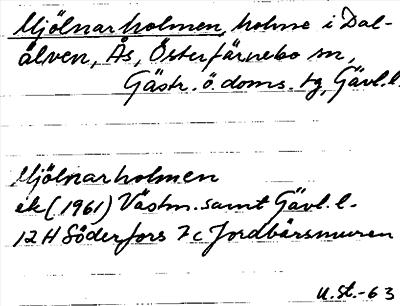 Mjölnarholmen, holme i Dal-
älven, Ås, Österfärnebo sn,
Gästr. ö. doms. tg, Gävl. l.
Mjölnarholmen
ek (1961) Västm. samt Gävl. l.
12 H Söderfors 7c Jordbärsmuren
u. st. -63